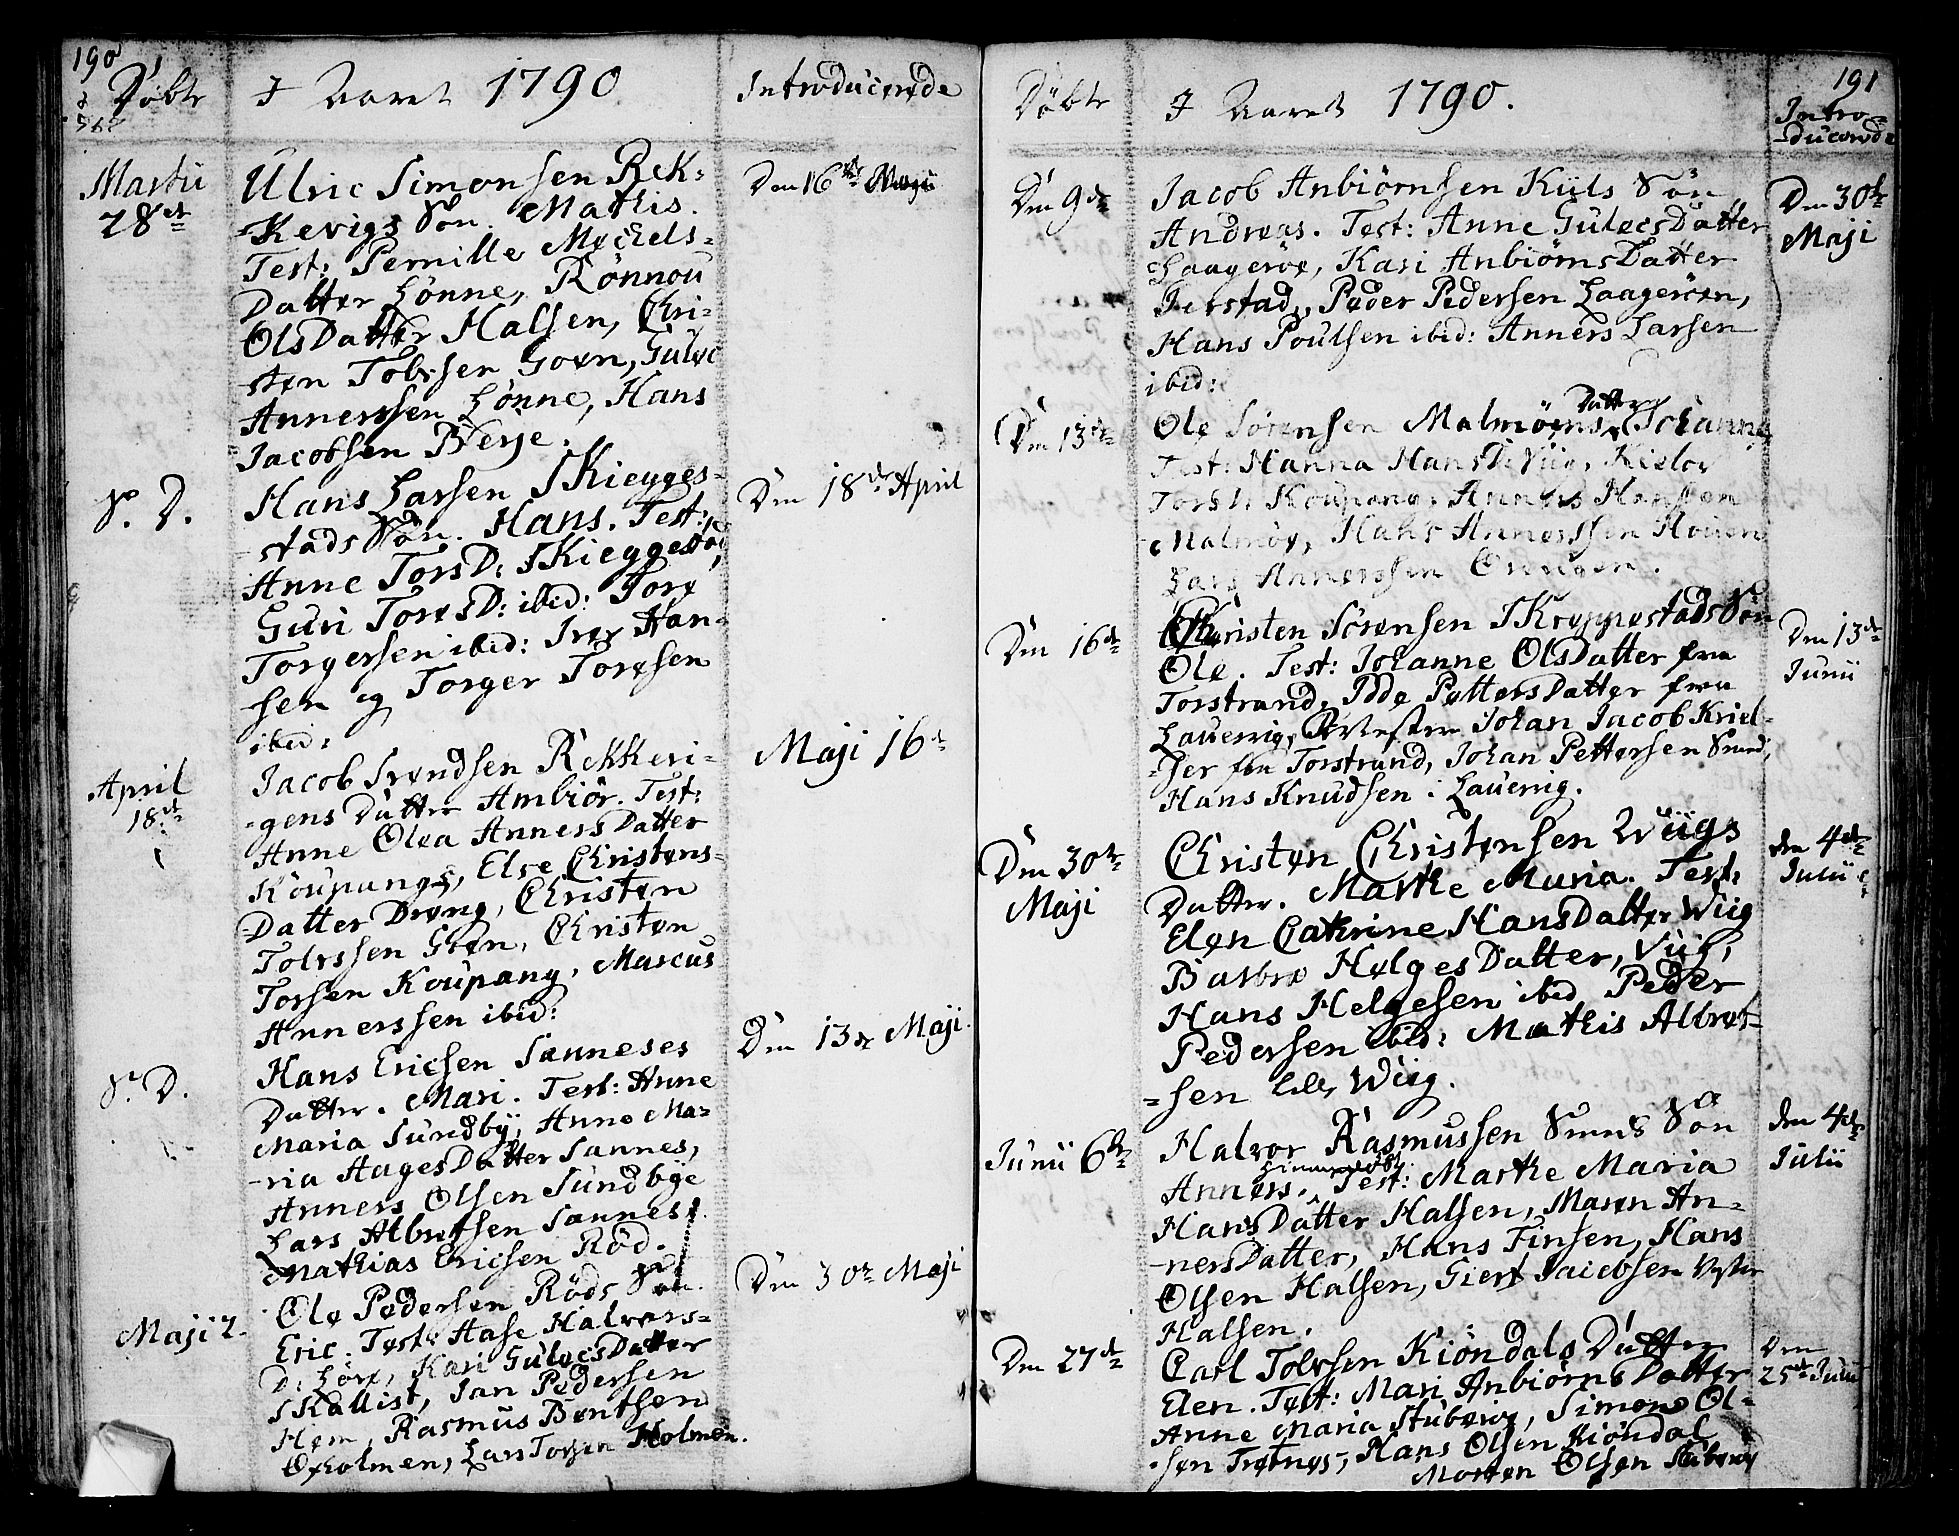 190
Døbte
I Aaret 1790
Introducerede
Martii
28de
Ulric Simonsen Rek-
Kevigs Søn. Mathis.
Test: Pernille Mechels-
Datter Lønne, Rønnou
OlsDatter Halsen, Chri-
sten Tolvsen Goen, Gulec
Annerssen Lønne, Hans
Jacobsen Berje.
Den 16de Maji
S. D.
Hans Larsen SKiegges-
stads Søn. Hans. Test:
Anne TorsD: SKieggestad,
Guri ToresD: ibid: Tore
Torgersen ibid: Iver Han-
sen og Torger Toresen
ibid:
Den 18de April
April
18de
Jacob Svendsen Rekkevi-
gens Datter Ambiør. Test:
Anne Olea AnnersDatter
Koupangs, Else Christens-
Datter Dreng, Christen
Tolvssen Goen, Christen
Torsen Koupang, Marcus
Annerssen ibid:
Maji 16de
S. D.
Hans Ericsen Sanneses
Datter. Mari. Test: Anne
Maria Sundby, Anne Ma-
ria AagesDatter Sannes,
Anners Olsen Sundbye
Lars Albretsen Sannes,
Mathias Ericsen Rød.
Den 13de Maji.
Maji 2.
Ole Pedersen Røds Søn.
Eric. Test: Aase Halvers-
D: Løve, Kari GulecsDatter
SKallist, Jan Pedersen
Hem, Rasmus Bentsen
Oxholmen, Lars Torsen Holmen.
Den 30te Maji
191
Døbte
I Aaret 1790.
Intro-
ducerede
Den 9de
Jacob Anbiørnsen Kiils Søn
Andreas. Test: Anne GulecsDatter
Laagerøe, Kari AnbiørnsDatter
Ierstad, Peder Pedersen Laagerøen,
Hans Poulsen ibid: Anners Larsen
ibid:
Den 30te
Maji
Den 13de
Ole Sørensen Malmøens Datter Johanne
Test: Hanna HansD: Viig, Kislov
TorsD: Koupang, Anners Hansen
Malmøe, Hans Annerssen Houen
Lars Annerssen
Den 16de
Christen Sørensen SKreppestads Søn
Ole. Test: Johanne OlsDatter fra
Torstrand, Idde PettersDatter fra
Lauervig, Johan Jacob Kriel-
ser fra Torstrand, Johan Pettersen Smed,
Hans Knudsen i Lauervig.
Den 13de
Junii
Den 30te
Maji
Christen Christensen Wiigs
Datter. Marthe Maria. Test:
Elen Cathrine HansDatter Wiig
Barbro HelgesDatter, Viig,
Hans Helgesen ibid, Peder
Pedersen ibid: Mathis Albret-
sen lille Wiig.
den 4de
Julii
Junii 6te
Halvor Rasmussen Smeds Søn
Anners. Test: Marthe Maria
HansDatter Halsen, Maren An-
nersDatter, Hans Finsen, Hans
Olsen Halsen, Giert Jacobsen Vester
Halsen.
den 4de
Julii
Den 27de
Carl Tolvsen Kiøndals Datter
Elen. Test: Mari AnbiørnsDatter
Anne Maria Stuberg, Simon Ol-
sen Tretnes, Hans Olsen Kiøndal
Morten Olsen Stuberg
Den
25de Julii